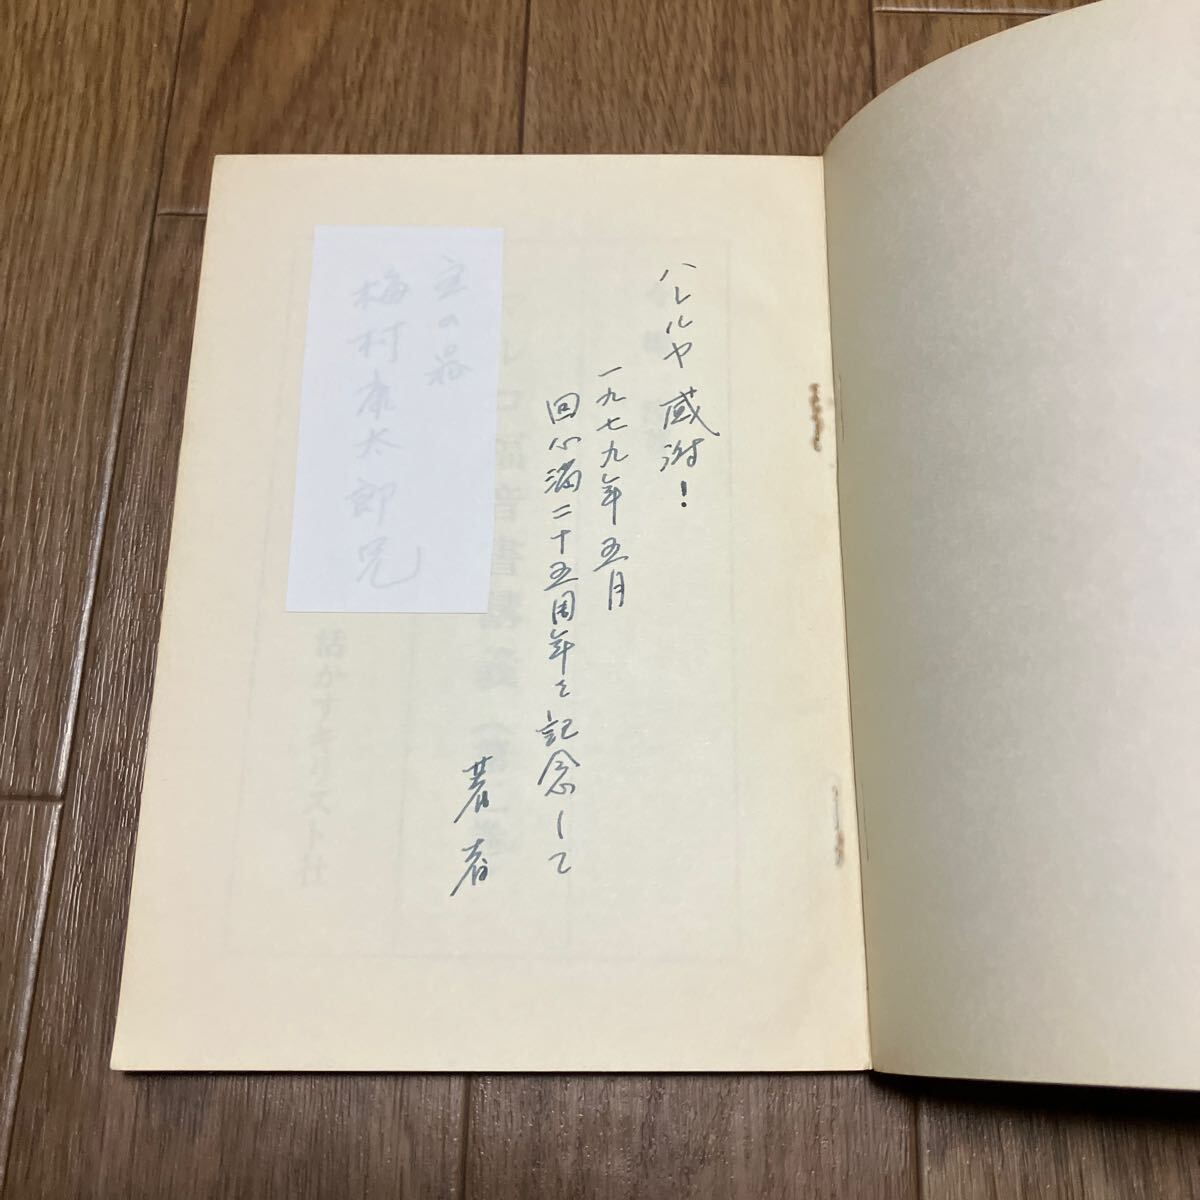 ハレルヤ 感謝!
一九七九年五月
回心満二十五周年を記念して
著者
主の器
梅村康太郎兄
マルコ福音書講義
活かすキリスト社